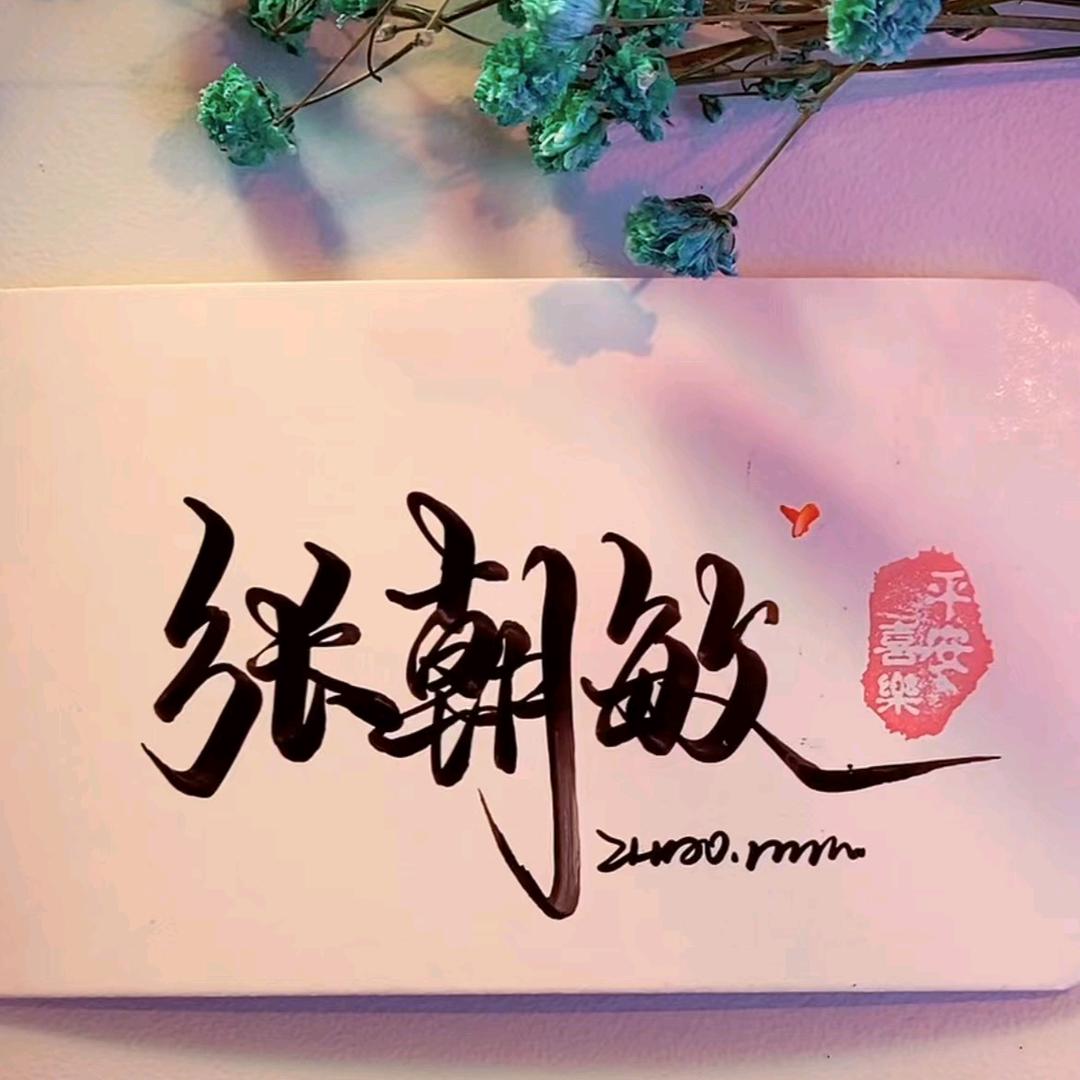 张朝敏
平安
喜樂
zhao.min